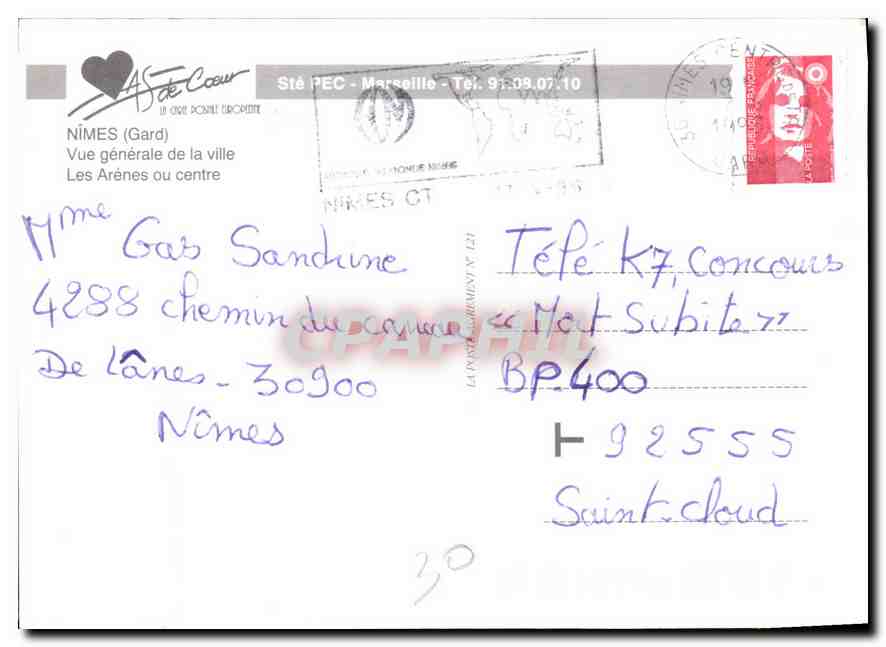 AS de Cœur
LA CARTE POSTALE EUROPEENNE
Sté PEC - Marseille - Tél. 91.09.07.10
NÎMES (Gard)
Vue générale de la ville
Les Arénes ou centre
NIMES CT
REPUBLIQUE FRANÇAISE
LA POSTE
Mme Gas Sandrine
4288 chemin du
De L'ânes - 30900
Nîmes
LA POSTE AGREMENT N° 121
CPAPHIL
Télé K7, Concours
« Mort Subite »
BP.400
92555
Saint-Cloud
30